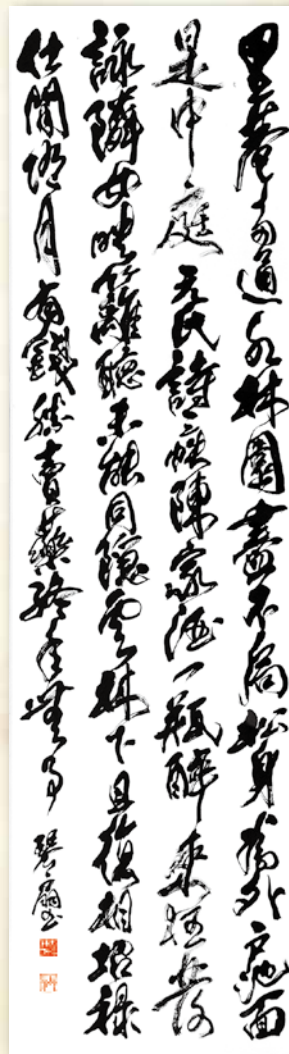 里巷多通水林園盡不扃松身為外戶池面
是中庭元氏詩三帙陳家酒一瓶醉來狂發
詠隣女映籬聽未能同隱雲林下且復相招祿
仕閒隨月有錢勝賣藥終年無事